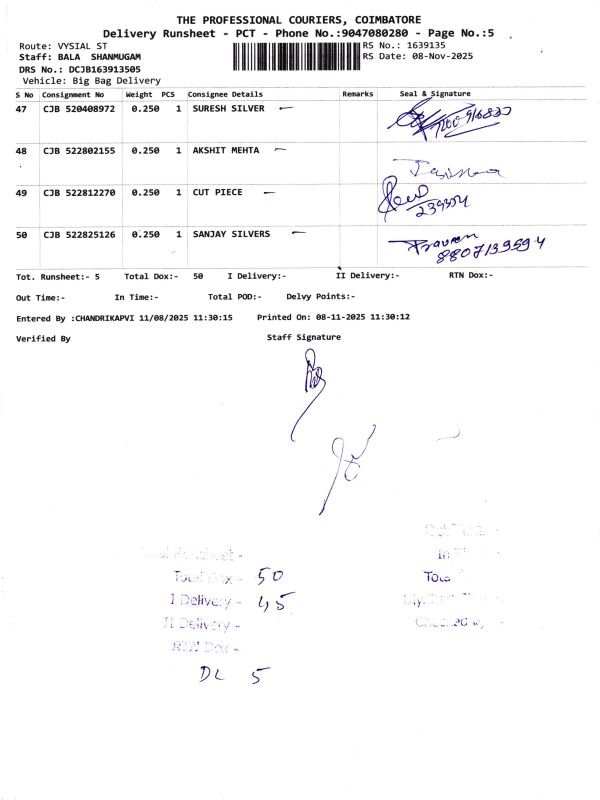 THE PROFESSIONAL COURIERS, COIMBATORE
Delivery Runsheet - PCT - Phone No.:9047080280 - Page No.:5
Route: VYSIAL ST RS No.: 1639135
Staff: BALA SHANMUGAM RS Date: 08-Nov-2025
DRS No.: DCJB163913505
Vehicle: Big Bag Delivery
S No Consignment No Weight PCS Consignee Details Remarks Seal & Signature
47 CJB 520408972 0.250 1 SURESH SILVER -
48 CJB 522802155 0.250 1 AKSHIT MEHTA -
49 CJB 522812270 0.250 1 CUT PIECE -
239304
50 CJB 522825126 0.250 1 SANJAY SILVERS - Praveen
8807139594
Tot. Runsheet:- 5 Total Dox:- 50 I Delivery:- II Delivery:- RTN Dox:-
Out Time:- In Time:- Total POD:- Delvy Points:-
Entered By :CHANDRIKAPVI 11/08/2025 11:30:15 Printed On: 08-11-2025 11:30:12
Verified By Staff Signature
Total Dox - 50
I Delivery - 45
II Delivery -
RTN Dox -
DL 5